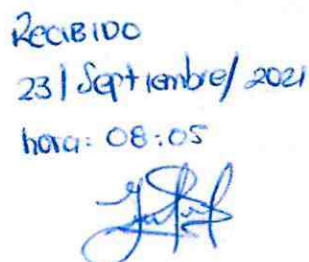 RECIBIDO
23/Septiembre/2021
hora: 08:05